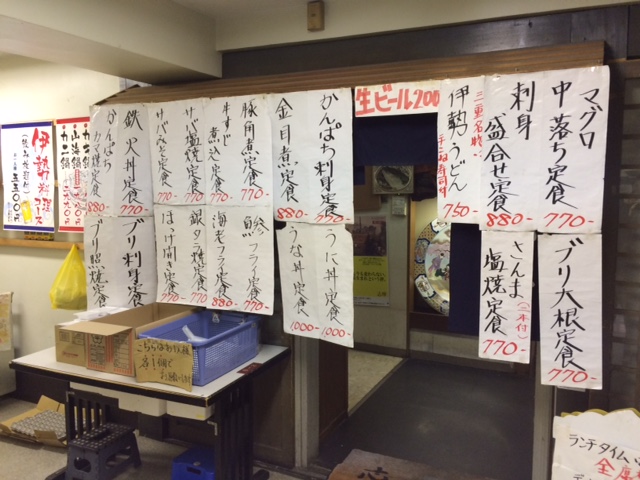 マグロ
中落ち定食
770-
刺身
盛合せ定食
880-
三重名物
伊勢うどん
手こね寿司付
750-
生ビール200
かんぱち刺身定食
770-
金目煮定食
880-
豚角煮定食
770-
牛すじ
煮込定食
770-
サバ塩焼定食
770-
サバみそ定食
770-
鉄火丼定食
770-
かんぱち
カマ焼定食
880-
ブリ大根定食
770-
さんま
(二本付)
塩焼定食
770-
うに丼定食
1000-
うな丼定食
1000-
鯵フライ定食
770-
海老フライ定食
880-
銀タラ焼定食
770-
ほっけ開き定食
770-
ブリ刺身定食
ブリ照焼定食
カキ鍋
山海鍋
カニ鍋
伊勢料理
こちらはお一人様
各1個で
ランチタイム